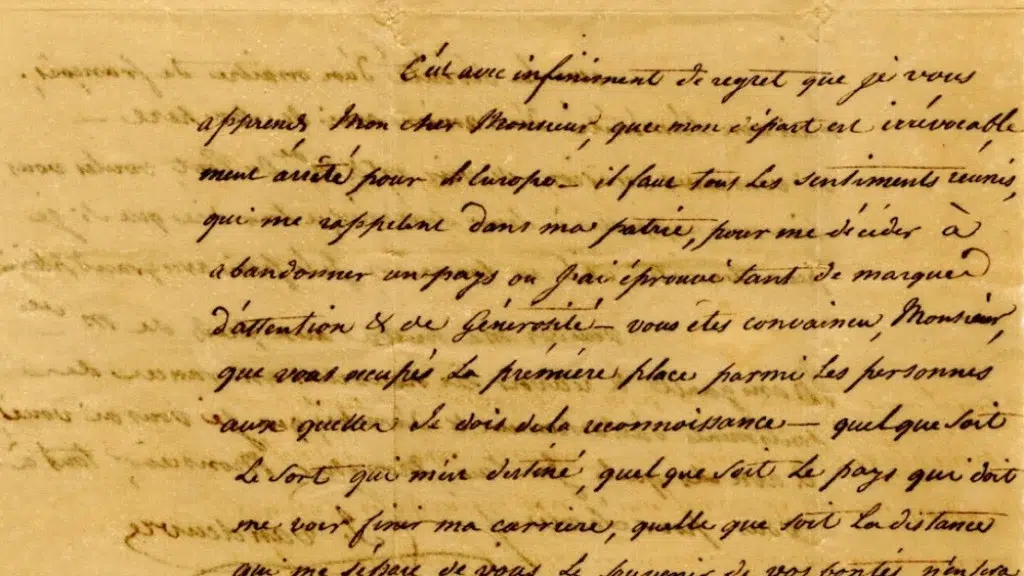 C'est avec infiniment de regret que je vous
apprends Mon cher Monsieur, que mon départ est irrévocable
ment arrêté pour l'Europe – il faut tous les sentiments réunis,
qui me rappelent dans ma patrie, pour me décider à
abandonner un pays ou J'ai éprouvé tant de marques
d'attention & de Générosité – vous étes convaincu, Monsieur,
que vous occupés la prémiére place parmi les personnes
aux quelles Je dois de la reconnoissance – quel que soit
Le Sort qui m'est destiné, quel que soit le pays qui doit
me voir finir ma carriere, quelle que soit la distance
qui me sépare de vous Le souvenir de vos bontés n'en sera